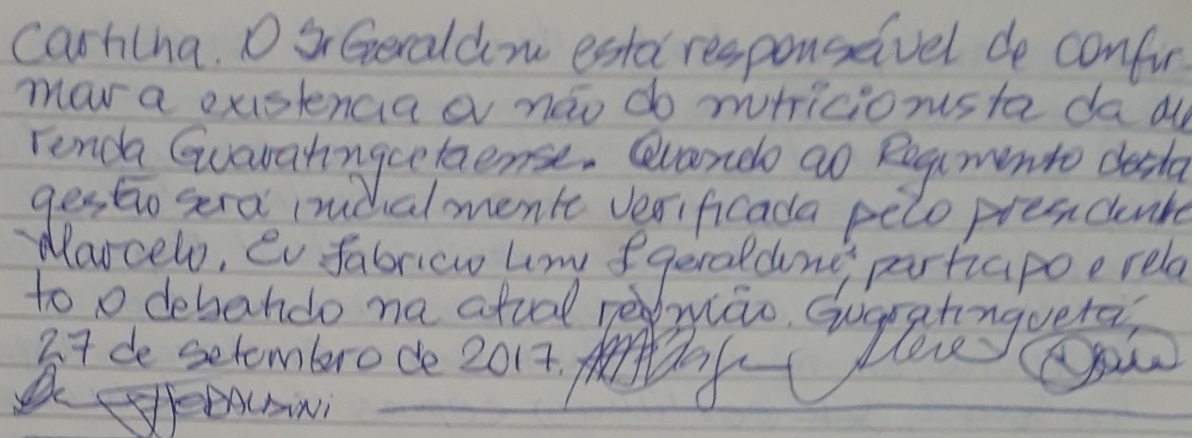 cartilha. O Sr Geraldini está responsável de confir-
mar a existencia ou não do nutricionista da me
renda Guaratinguetaense. Quando ao Regimento desta
gestão será inicialmente verificada pelo presidente
Marcelo. Eu Fabricio Geraldini, participo e rela
to o debatido na atual reunião. Guaratinguetá,
27 de setembro de 2017.
GERALDINI